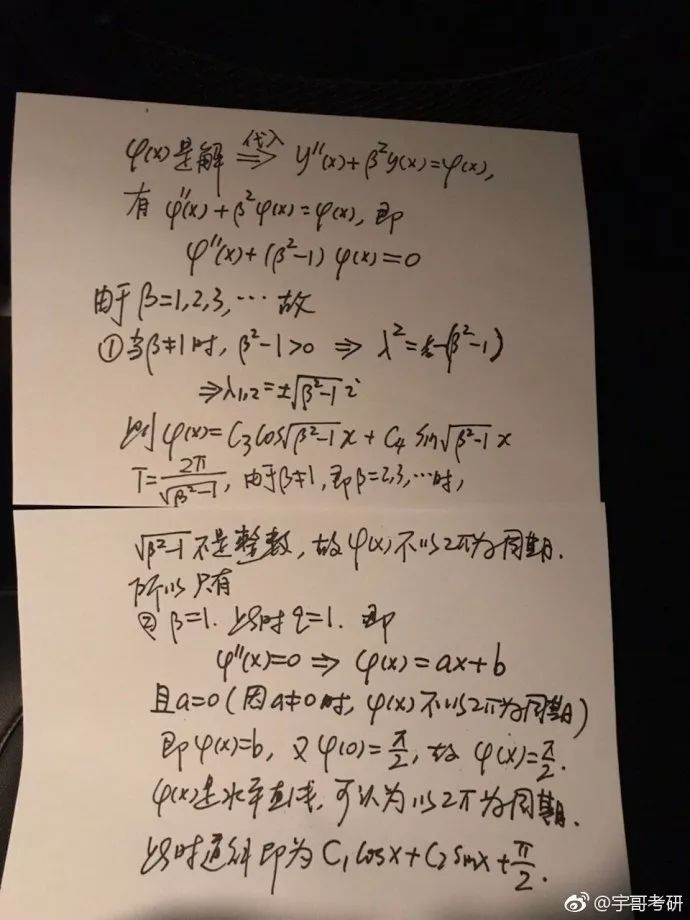 φ(x)是解 代入⟹ y″(x)+β²y(x)=φ(x),
有 φ″(x)+β²φ(x)=φ(x), 即
φ″(x)+(β²-1)φ(x)=0
由于β=1,2,3,… 故
①当β≠1时, β²-1>0 ⇒ λ²=-(β²-1)
⇒λ₁,₂=±√(β²-1) i
则φ(x)=C₃cos√(β²-1)x+C₄ sin√(β²-1)x
T=2π/√(β²-1), 由于β≠1, 即β=2,3,…时,
√(β²-1)不是整数, 故φ(x)不以2π为周期.
所以只有
②β=1. 此时q=1. 即
φ″(x)=0 ⇒ φ(x)=ax+b
且a=0(因a≠0时, φ(x)不以2π为周期)
即φ(x)=b, 又φ(0)=π/2, 故 φ(x)=π/2.
φ(x)是水平直线, 可认为以2π为周期.
此时通解即为C₁cosx+C₂sinx+π/2.
@宇哥考研